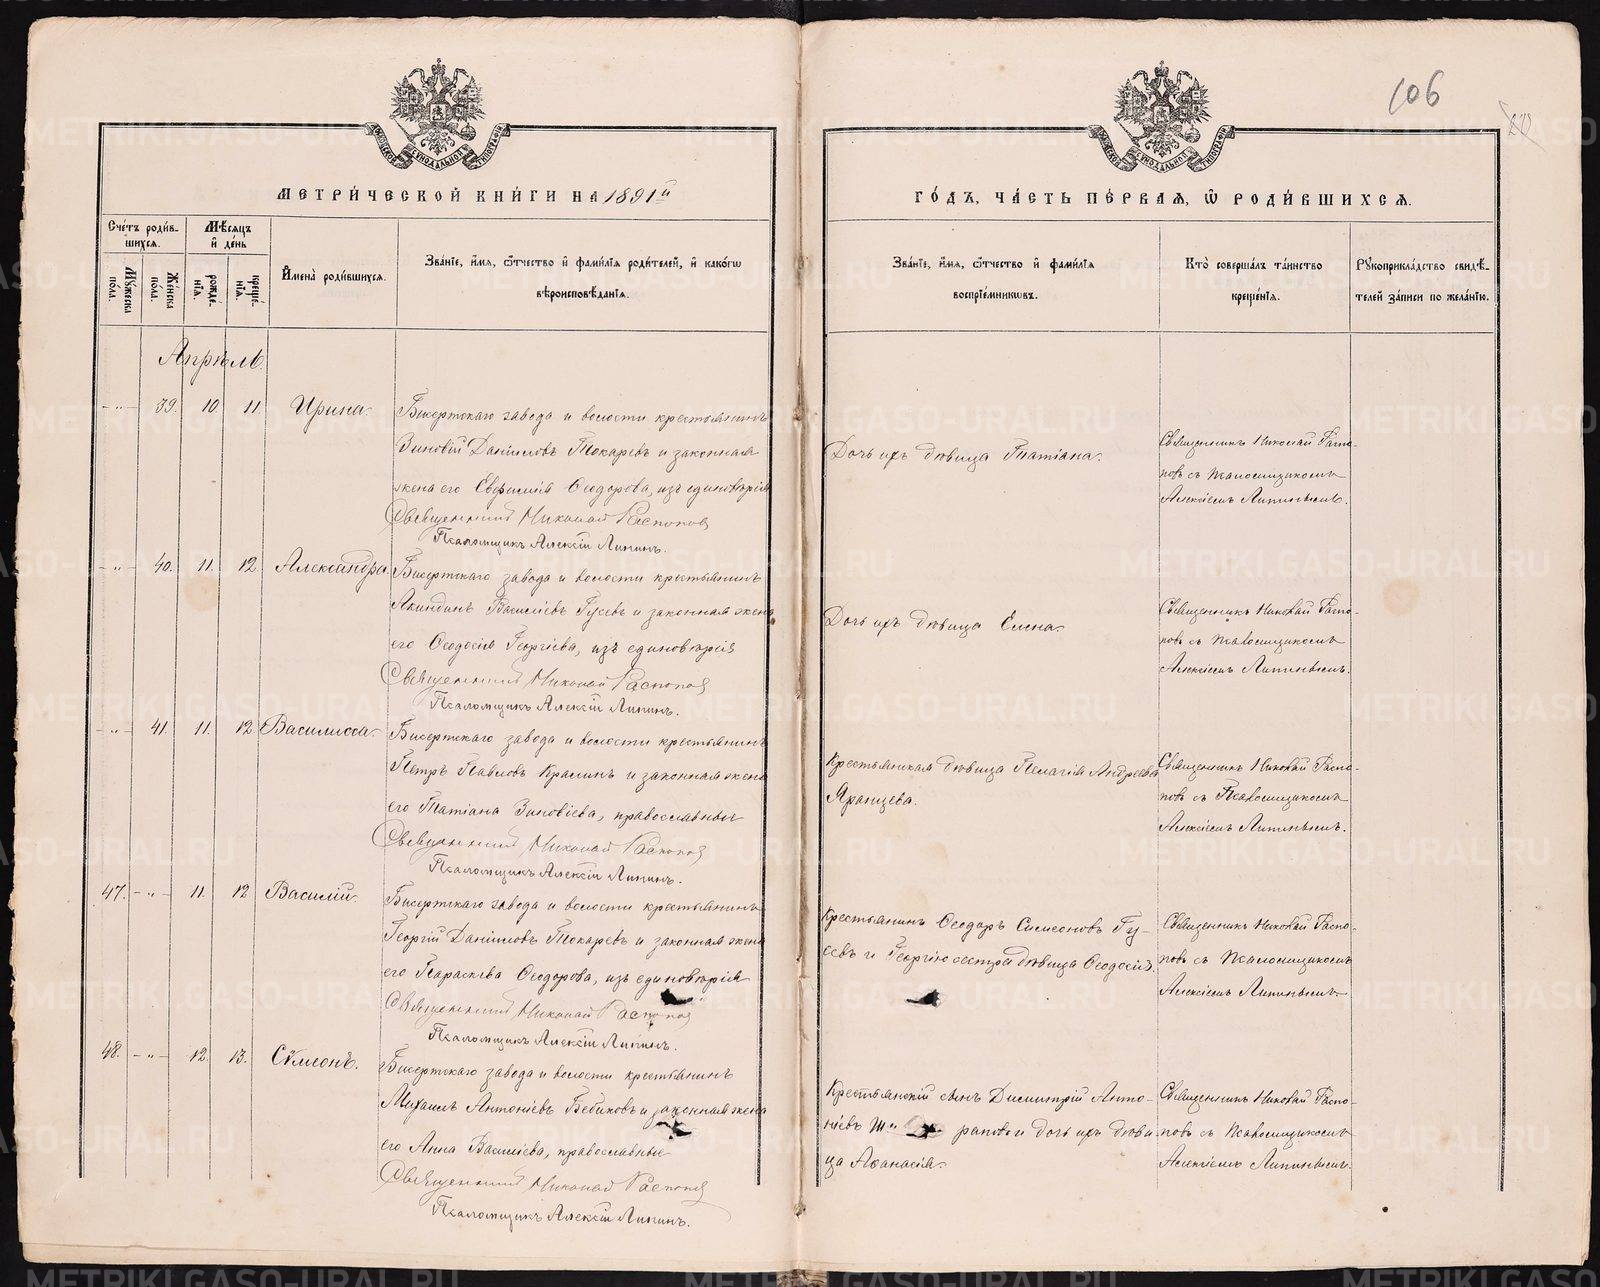 106
МЕТРИ́ЧЕСКОЙ КНИ́ГИ НА 1891й
ГО́ДЪ, ЧА́СТЬ ПЕ́РВАЯ, Ѽ РОДИ́ВШИХСЯ.
Сче́тъ роди́в-
шихся.
Мѣ́сяцъ
и҆ де́нь
Мꙋжеска
по́ла.
Же́нска
по́ла.
рожде́-
нїѧ.
креще́-
нїѧ.
И҆мена̀ роди́вшихся.
Зва́нїе, и҆́мя, ѻ҆́тчество и҆ фами́лїя роди́телей, и҆ како́гѡ
вѣроисповѣ́данїя.
Зва́нїе, и҆́мя, ѻ҆́тчество и҆ фами́лїя
воспрїе́мникѡвъ.
Кто̀ соверша́лъ та́инство
креще́нїя.
Рꙋкоприкла́дство свидѣ́-
телей за́писи по жела́нїю.
Апрѣль
- „ - 39. 10. 11. Ирина.
Бисертскаго завода и волости крестьянинъ
Зиновій Даніиловъ Токаревъ и законная
жена его Евфимія Ѳеодорова, изъ единовѣрія
Священникъ Николай Распоповъ
Псаломщикъ Алексій Липинъ.
Дочь ихъ дѣвица Татіана.
Священникъ Николай Распо-
повъ съ Псаломщикомъ
Алексіемъ Липинымъ.
- „ - 40. 11. 12. Александра.
Бисертскаго завода и волости крестьянинъ
Акиндинъ Василіевъ Гусевъ и законная жена
его Ѳеодосія Георгіева, изъ единовѣрія
Священникъ Николай Распоповъ
Псаломщикъ Алексій Липинъ.
Дочь ихъ дѣвица Елена.
Священникъ Николай Распо-
повъ съ Псаломщикомъ
Алексіемъ Липинымъ.
- „ - 41. 11. 12. Василисса.
Бисертскаго завода и волости крестьянинъ
Петръ Павловъ Кралинъ и законная жена
его Татіана Зиновіева, православные
Священникъ Николай Распоповъ
Псаломщикъ Алексій Липинъ.
Крестьянская дѣвица Пелагія Андреева
Яранцева.
Священникъ Николай Распо-
повъ съ Псаломщикомъ
Алексіемъ Липинымъ.
47. - „ - 11. 12. Василій.
Бисертскаго завода и волости крестьянинъ
Георгій Даніиловъ Токаревъ и законная жена
его Параскева Ѳеодорова, изъ единовѣрія
Священникъ Николай Распоповъ
Псаломщикъ Алексій Липинъ.
Крестьянинъ Ѳеодоръ Симеоновъ Гу-
севъ и Георгію сестра дѣвица Ѳеодосія.
Священникъ Николай Распо-
повъ съ Псаломщикомъ
Алексіемъ Липинымъ.
48. - „ - 12. 13. Сѵмеонъ.
Бисертскаго завода и волости крестьянинъ
Михаилъ Антоніевъ Бебиковъ и законная жена
его Анна Василіева, православные
Священникъ Николай Распоповъ
Псаломщикъ Алексій Липинъ.
Крестьянскій сынъ Димитрій Анто-
ніевъ и дочь ихъ дѣви-
ца Аѳанасія.
Священникъ Николай Распо-
повъ съ Псаломщикомъ
Алексіемъ Липинымъ.
METRIKI.GASO-URAL.RU